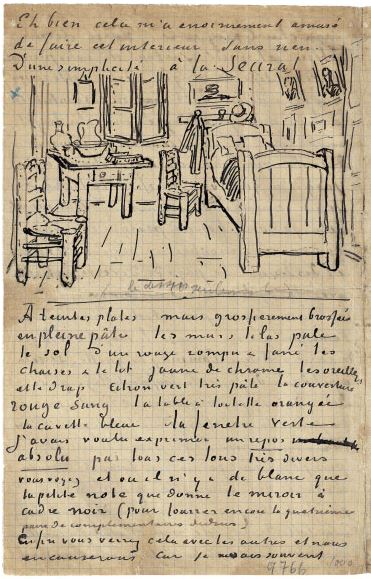 Eh bien cela m'a enormement amusé
de faire cet interieur sans rien.
D'une simplicité à la Seurat
À teintes plates mais grossierement brossées
en pleine pâte les murs lilas pale
le sol d'un rouge rompu & fané les
chaises & le lit jaune de chrome les oreillers
et le drap citron vert très pâle la couverture
rouge sang la table à toilette orangée
la cuvette bleue la fenetre verte
J'avais voulu exprimer un repos
absolu par tous ces tons très divers
vous voyez et où il n'y a de blanc que
la petite note que donne le miroir à
cadre noir (pour fourrer encore la quatrième
paire de complementaires dedans)
Enfin vous verrez cela avec les autres et nous
en causerons car je souvent
9766